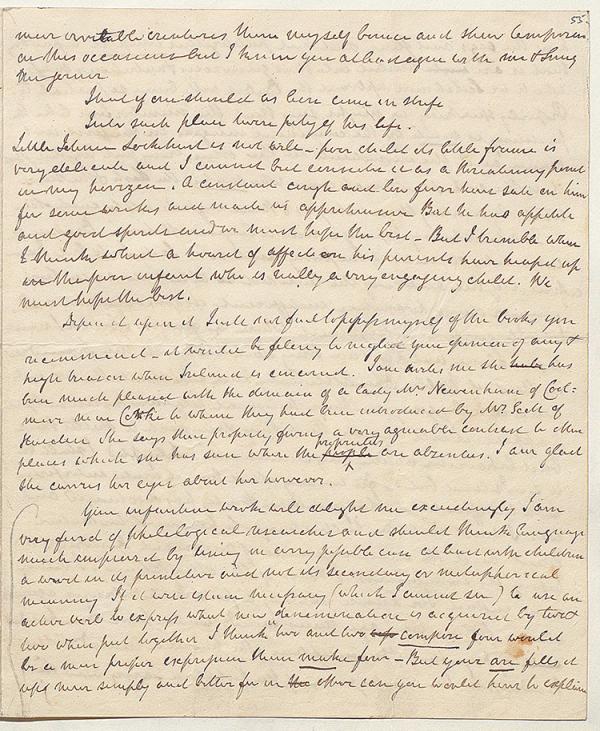 55.
more irritable creatures than myself bounce and shew temper
on this occasion but I know you at least agree with me & sing
the
That if one should as been come in strife
Into such place were pity of his life.
Little Johnnie Lockhart is not well – poor child its little frame is
very delicate and I cannot but consider it as a threatening point
in my horizon. A constant cough and low fever have sate on him
for some weeks and made us apprehensive But he has appetite
and good spirits and we must hope the best – But I tremble when
I think what a hoard of affection his parents have heaped up
on this poor infant who is really a very engaging child. We
must hope the best.
Depend upon it I will not fail to possess myself of the books you
recommend – it would be felony to neglect your opinion of any &
high treason when Ireland is concerned. Jane writes me she has
been much pleased with the domain of a lady Mrs Newenham of Cool=
more near Corke to where they had been introduced by Mr Scott of
Harden She says their property forms a very agreeable contrast to other
places which she has seen where the people proprietors are absentees. I am glad
she carries her eyes about her however.
Your unfinished work will delight me exceedingly I am
very fond of philological researches and should think language
much improved by using in every possible case at least with children
a word in its primitive and not its secondary or metaphorical
meaning If it were given necessary (which I cannot see) to use an
active verb to express what new denomination is acquired by two &
two when put together I think two and two compose four would
be a more proper expression than make four – But your are tells it
more simply and better for in the other case you would have to explain